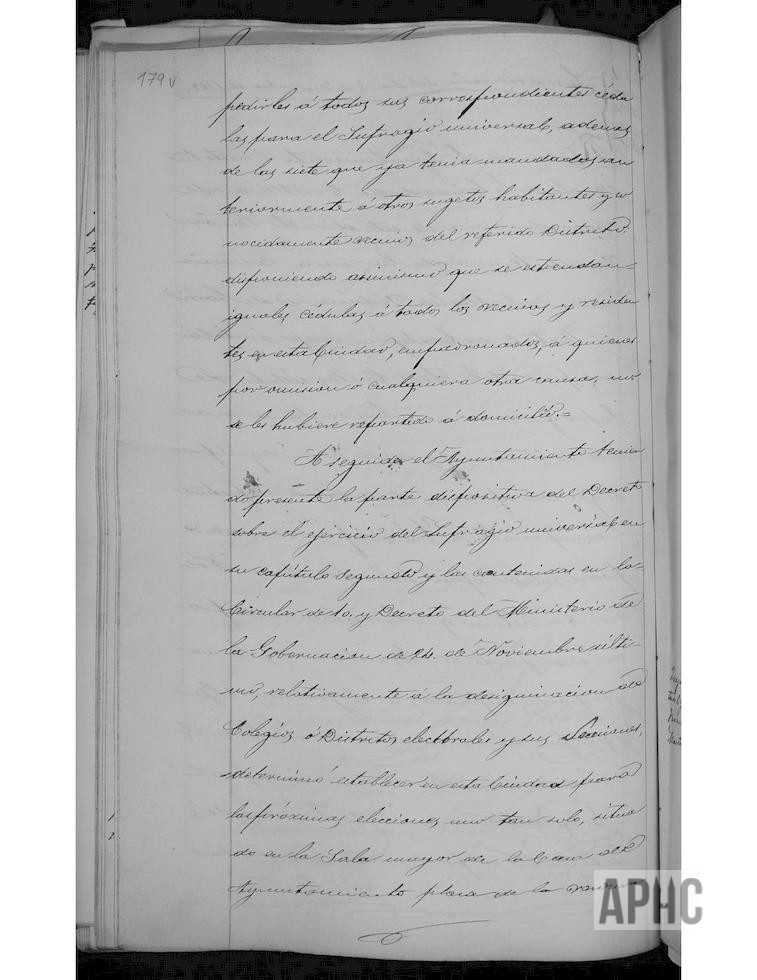 179 v
pedirles á todos sus correspondientes cédu
las para el Sufragio universal, ademas
de las siete que ya tenia mandadas an
teriormente á otros sugetos habitantes y co
nocidamente vecinos del referido Distrito.
disponiendo asimismo que se estiendan=
iguales cédulas á todos los vecinos y residen
tes en esta Ciudad, empadronados, á quienes
por omision ó cualquiera otra causa, no
se les hubiere repartido á domicilio.=
A seguida el Ayuntamiento tenien
do presente la parte dispositiva del Decreto
sobre el ejercicio del Sufragio universal en
su capítulo segundo y las contenidas en la
Circular de 10. y Decreto del Ministerio de
la Gobernacion de 24. de Noviembre últi-
mo, relativamente á la designacion de
Colegios ó Distritos electorales y sus Secciones,
determinó establecer en esta Ciudad para
las próximas elecciones uno tan solo, situa
do en la Sala mayor de la Casa del
Ayuntamiento plaza de la
APHC